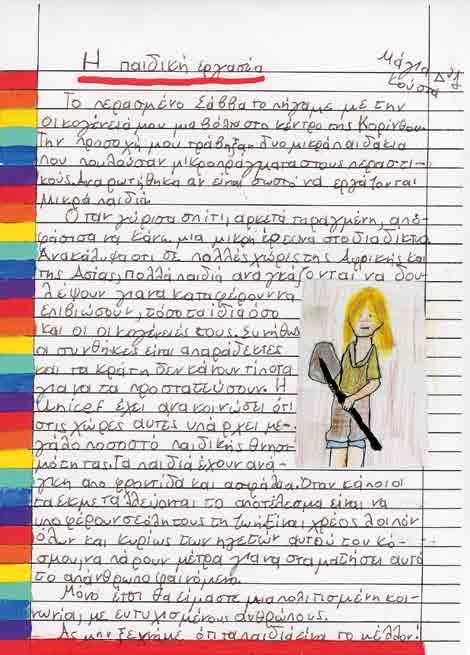 Η παιδική εργασία
Μάγια
Κούστα Δ'1
Το περασμένο Σάββατο πήγαμε με την
οικογένειά μου μια βόλτα στο κέντρο της Κορίνθου.
Την προσοχή μου τράβηξαν δυο μικρά παιδάκια
που πουλούσαν μικροπράγματα στους περαστι-
κούς. Αναρωτήθηκα αν είναι σωστό να εργάζονται
μικρά παιδιά.
Όταν γύρισα σπίτι, αρκετά ταραγμένη, απο-
φάσισα να κάνω μια μικρή έρευνα στο διαδίκτυο.
Ανακάλυψα ότι σε πολλές χώρες της Αφρικής και
της Ασίας, πολλά παιδιά αναγκάζονται να δου-
λέψουν για να καταφέρουν να
επιβιώσουν, τόσο τα ίδια όσο
και οι οικογένειές τους. Συνήθως
οι συνθήκες είναι απαράδεκτες
και τα κράτη δεν κάνουν τίποτα
για να τα προστατεύσουν. Η
Unicef έχει ανακοινώσει ότι
στις χώρες αυτές υπάρχει με-
γάλο ποσοστό παιδικής θνησι-
μότητας. Τα παιδιά έχουν ανά-
γκη από φροντίδα και ασφάλεια. Όταν κάποιοι
τα εκμεταλλεύονται το αποτέλεσμα είναι να
υποφέρουν σε όλη τους τη ζωή. Είναι χρέος λοιπόν
όλων και κυρίως των ηγετών αυτού του κό-
σμου, να πάρουν μέτρα για να σταματήσει αυτό
το απάνθρωπο φαινόμενο.
Μόνο έτσι θα είμαστε μια πολιτισμένη κοι-
νωνία, με ευτυχισμένους ανθρώπους.
Ας μην ξεχνάμε ότι τα παιδιά είναι το μέλλον!